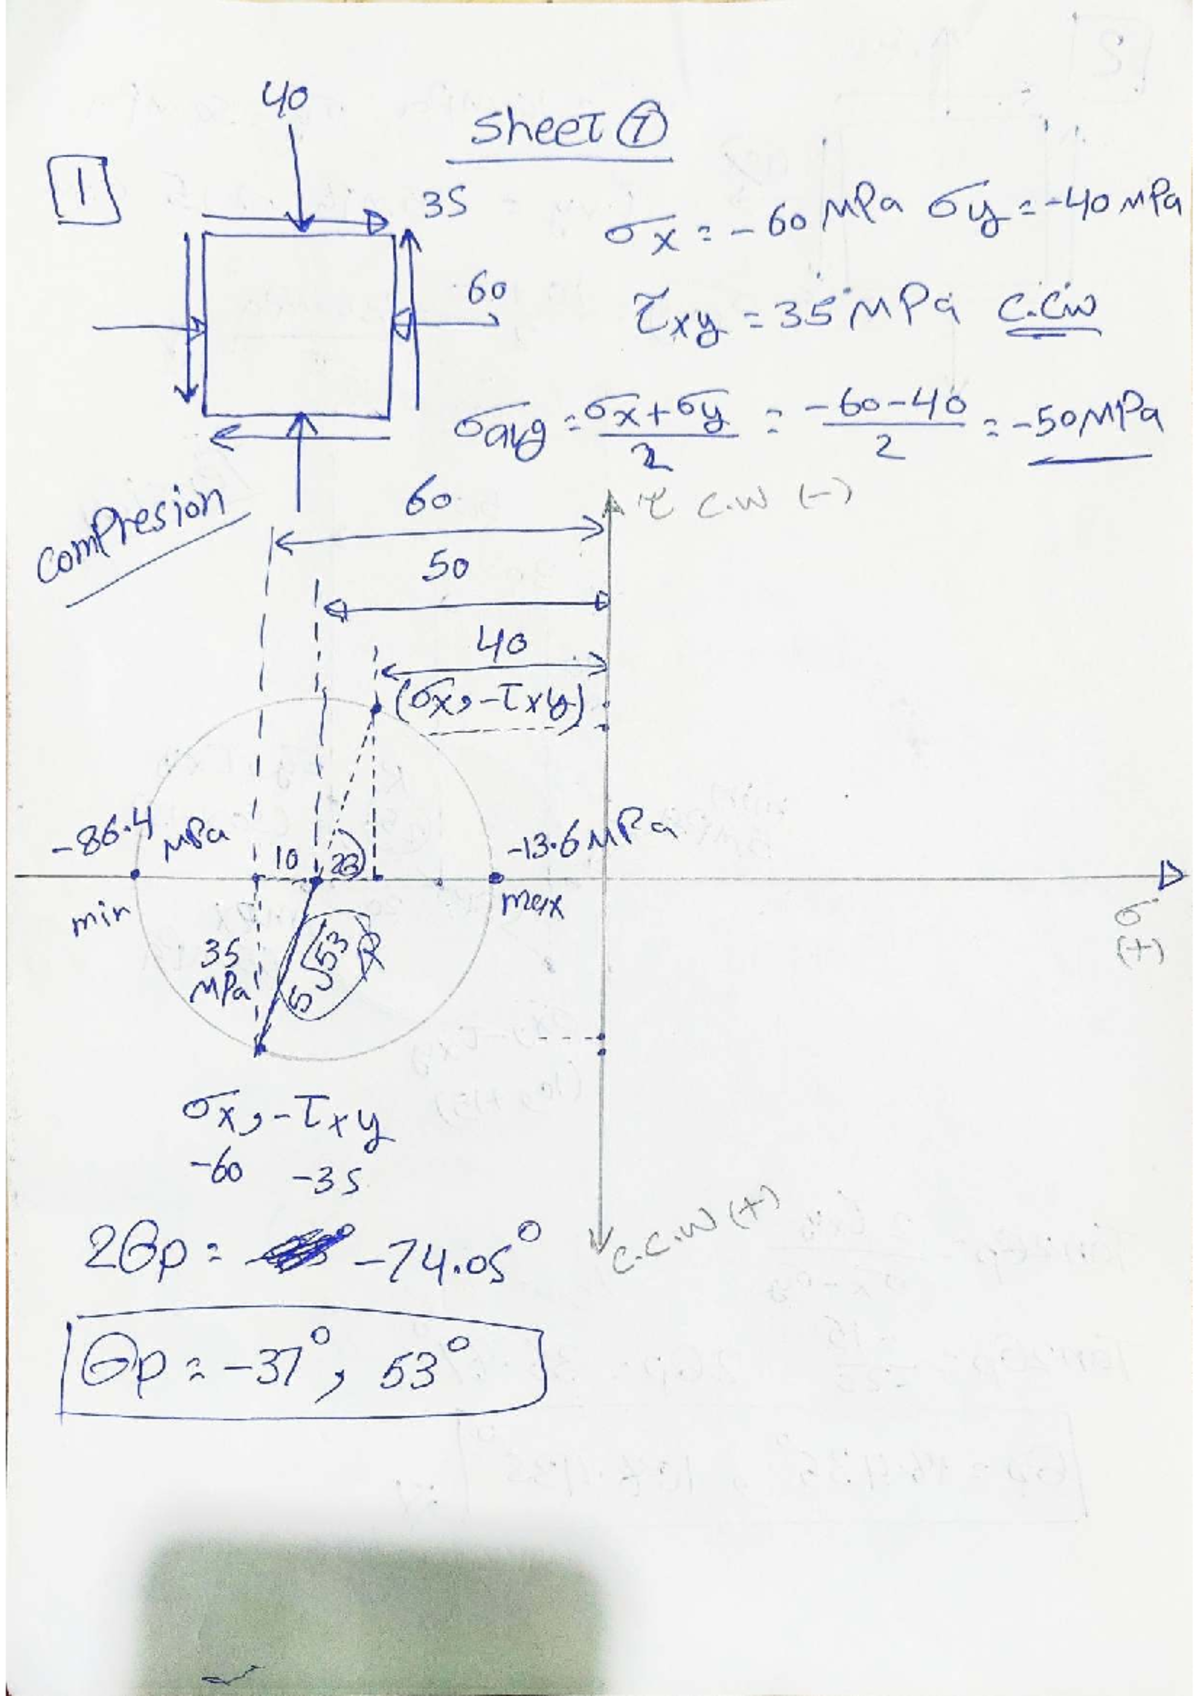 Sheet ⑦
40
1
35
60
σx = -60 MPa σy = -40 MPa
τxy = 35 MPa C.CW
σavg = σx+σy/2 = -60-40/2 = -50 MPa
Compresion
60
τ C.W (-)
50
40
(σx, -τxy)
-86.4 MPa
-13.6 MPa
10
min
max
σ (+)
35 MPa
5√53
R
σx, -τxy
-60 -35
C.C.W (+)
2θp = -74.05°
θp = -37°, 53°